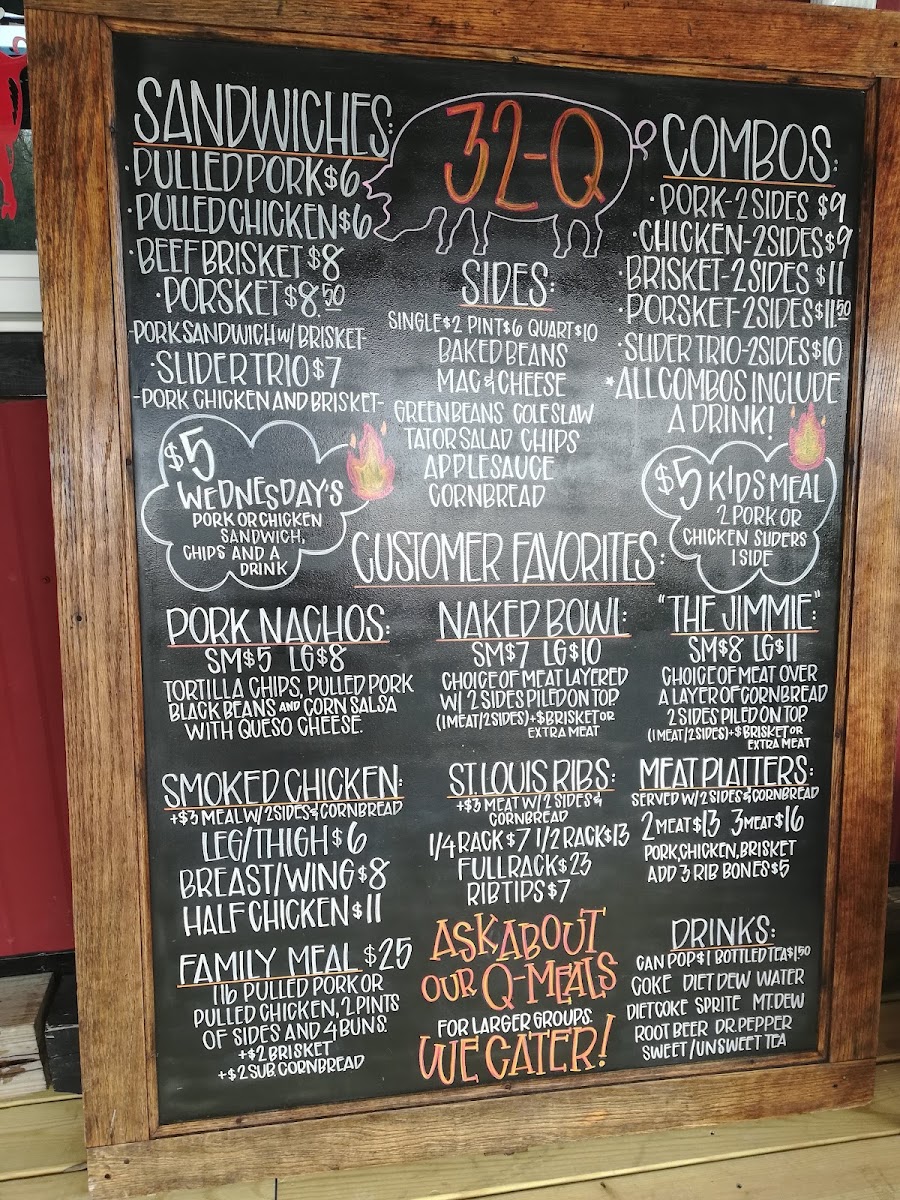 SANDWICHES:
• PULLED PORK $6
• PULLED CHICKEN $6
• BEEF BRISKET $8
• PORSKET $8.50
-PORK SANDWICH W/ BRISKET-
• SLIDER TRIO $7
-PORK CHICKEN AND BRISKET-
$5
WEDNESDAY'S
PORK OR CHICKEN
SANDWICH,
CHIPS AND A
DRINK
32-Q
SIDES:
SINGLE $2 PINT $6 QUART $10
BAKED BEANS
MAC & CHEESE
GREEN BEANS COLE SLAW
TATOR SALAD CHIPS
APPLESAUCE
CORNBREAD
COMBOS:
• PORK-2 SIDES $9
• CHICKEN-2 SIDES $9
• BRISKET-2 SIDES $11
• PORSKET-2 SIDES $11.50
• SLIDER TRIO-2 SIDES $10
* ALL COMBOS INCLUDE
A DRINK!
$5 KIDS MEAL
2 PORK OR
CHICKEN SLIDERS
1 SIDE
CUSTOMER FAVORITES:
PORK NACHOS:
SM $5 LG $8
TORTILLA CHIPS, PULLED PORK
BLACK BEANS AND CORN SALSA
WITH QUESO CHEESE.
NAKED BOWL:
SM $7 LG $10
CHOICE OF MEAT LAYERED
W/ 2 SIDES PILED ON TOP.
(1 MEAT/2 SIDES) +$ BRISKET OR
EXTRA MEAT
"THE JIMMIE":
SM $8 LG $11
CHOICE OF MEAT OVER
A LAYER OF CORNBREAD
2 SIDES PILED ON TOP.
(1 MEAT/2 SIDES) +$ BRISKET OR
EXTRA MEAT
SMOKED CHICKEN:
+$3 MEAL W/ 2 SIDES & CORNBREAD
LEG/THIGH $6
BREAST/WING $8
HALF CHICKEN $11
ST. LOUIS RIBS:
+$3 MEAT W/ 2 SIDES &
CORNBREAD
1/4 RACK $7 1/2 RACK $13
FULL RACK $23
RIB TIPS $7
MEAT PLATTERS:
SERVED W/ 2 SIDES & CORNBREAD
2 MEAT $13 3 MEAT $16
PORK, CHICKEN, BRISKET
ADD 3 RIB BONES $5
FAMILY MEAL $25
1 lb PULLED PORK OR
PULLED CHICKEN, 2 PINTS
OF SIDES AND 4 BUNS.
+$2 BRISKET
+$2 SUB. CORNBREAD
ASK ABOUT
OUR Q-MEALS
FOR LARGER GROUPS.
WE CATER!
DRINKS:
CAN POP $1 BOTTLED TEA $1.50
COKE DIET DEW WATER
DIET COKE SPRITE MT. DEW
ROOT BEER DR. PEPPER
SWEET/UNSWEET TEA